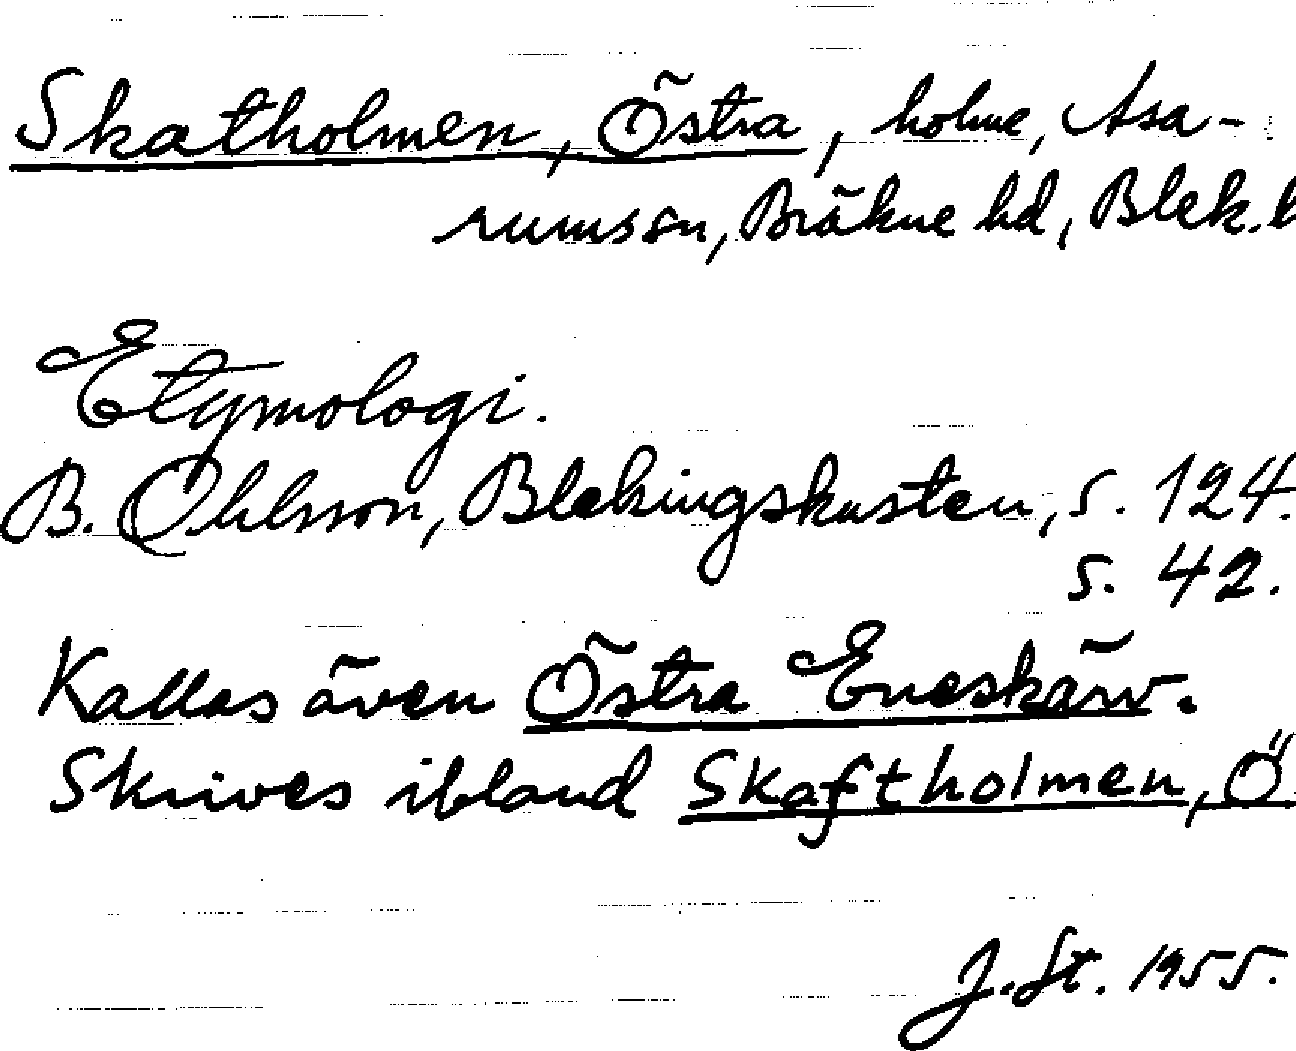 Skatholmen, Östra, holme, Asa-
rumssn, Bräkne hd, Blek. l
Etymologi.
B. Ohlsson, Blekingskusten, s. 124.
s. 42.
Kallas även Östra Eneskärv.
Skrives ibland Skaftholmen, Ö.
J. St. 1955.